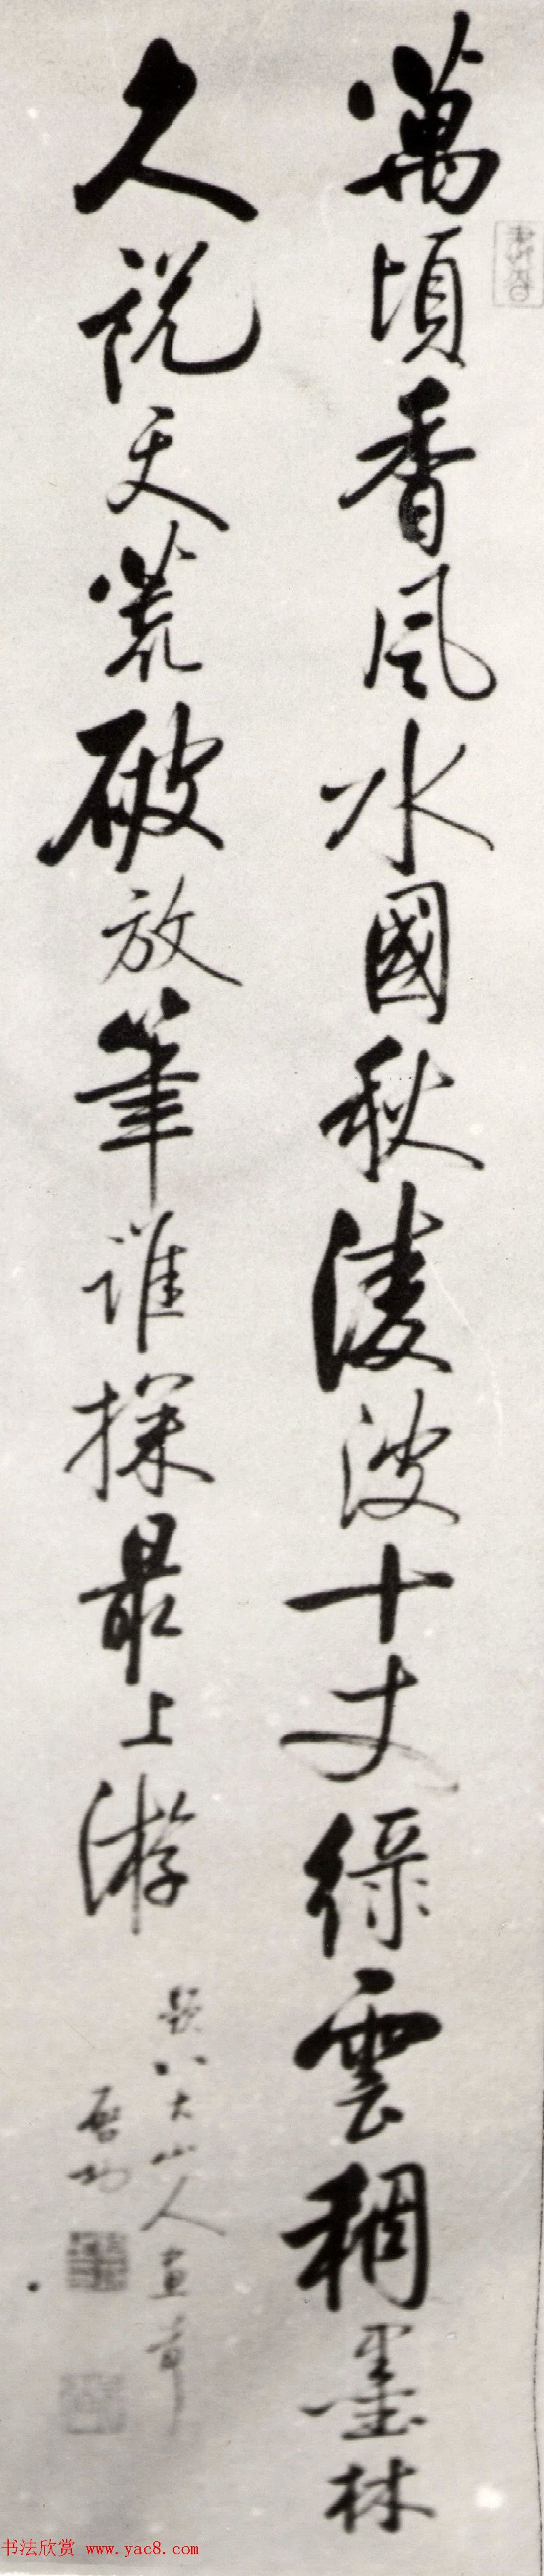 萬頃香風水國秋淩波十丈綠雲稠墨林
久説天荒破放筆誰探最上游
題八大山人畫卷
啓功
书法欣赏 www.yac8.com